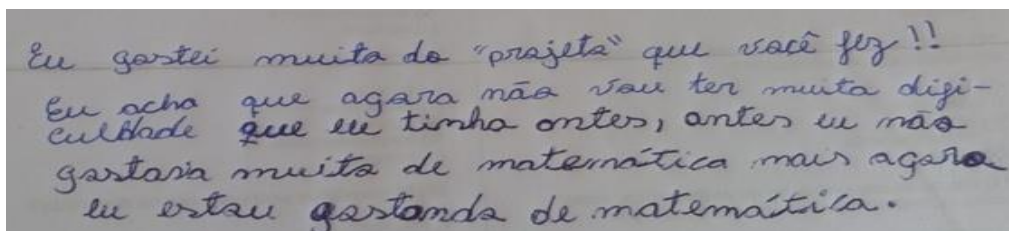 Eu gostei muito do "projeto" que você fez!!
Eu acho que agora não vou ter muita difi-
culdade que eu tinha antes, antes eu não
gostava muito de matemática mais agora
eu estou gostando de matemática.